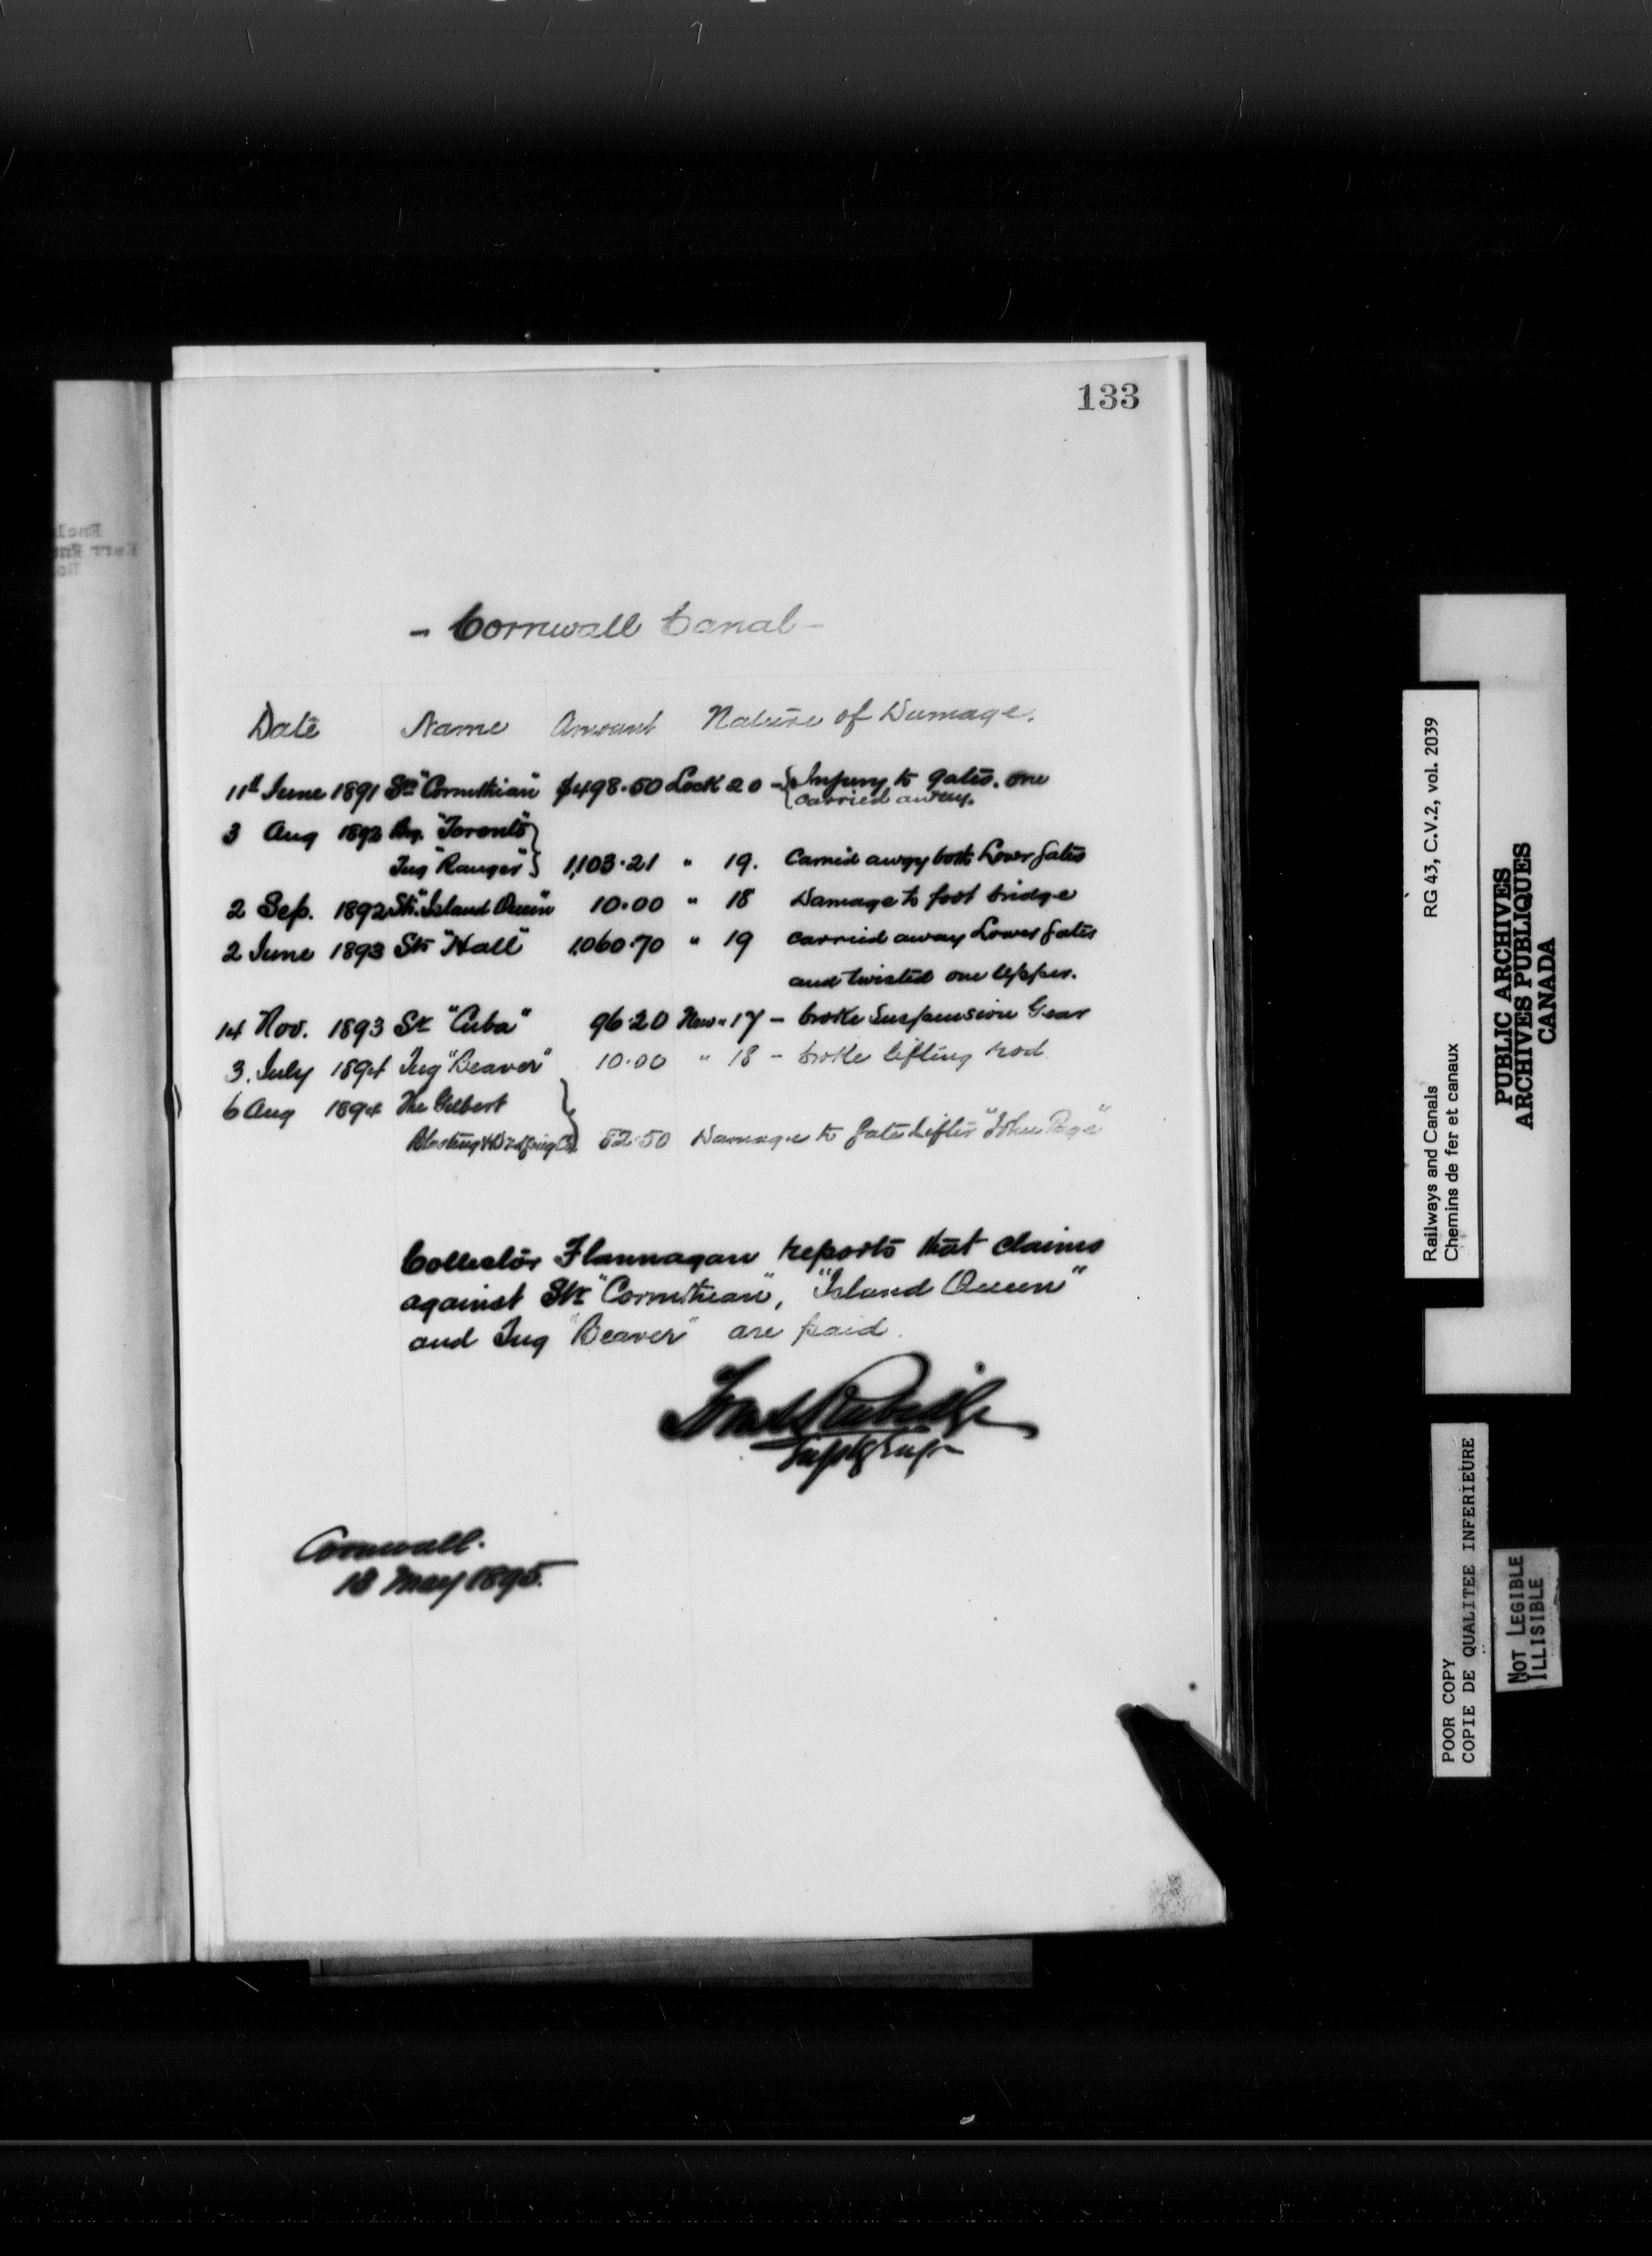 133
- Cornwall Canal -
Date Name Amount Nature of Damage.
11th June 1891 Str "Corinthian" $498.50 Lock 20 - { Injury to gates. one
carried away.
3 Aug 1892 Bge. "Toronto" }
Tug "Ranger" } 1,103.21 " 19. Carried away both Lower Gates
2 Sep. 1892 Str. "Island Queen" 10.00 " 18 Damage to foot bridge
2 June 1893 Str "Hall" 1,060.70 " 19 carried away Lower Gates
and twisted one Upper.
14 Nov. 1893 Str "Cuba" 96.20 New " 17 - broke Suspension Gear
3. July 1894 Tug "Beaver" 10.00 " 18 - broke lifting rod.
6 Aug 1894 The Gilbert }
Blasting & Dredging Co. 52.50 Damage to Gate Lifter "John Page"
Collector Flannagan reports that claims
against Str "Corinthian", "Island Queen"
and Tug "Beaver" are paid.
Suptg Engr
Cornwall.
18 May 1895.
Railways and Canals RG 43, C.V.2, vol. 2039
Chemins de fer et canaux
PUBLIC ARCHIVES
ARCHIVES PUBLIQUES
CANADA
POOR COPY
COPIE DE QUALITEE INFERIEURE
NOT LEGIBLE
ILLISIBLE